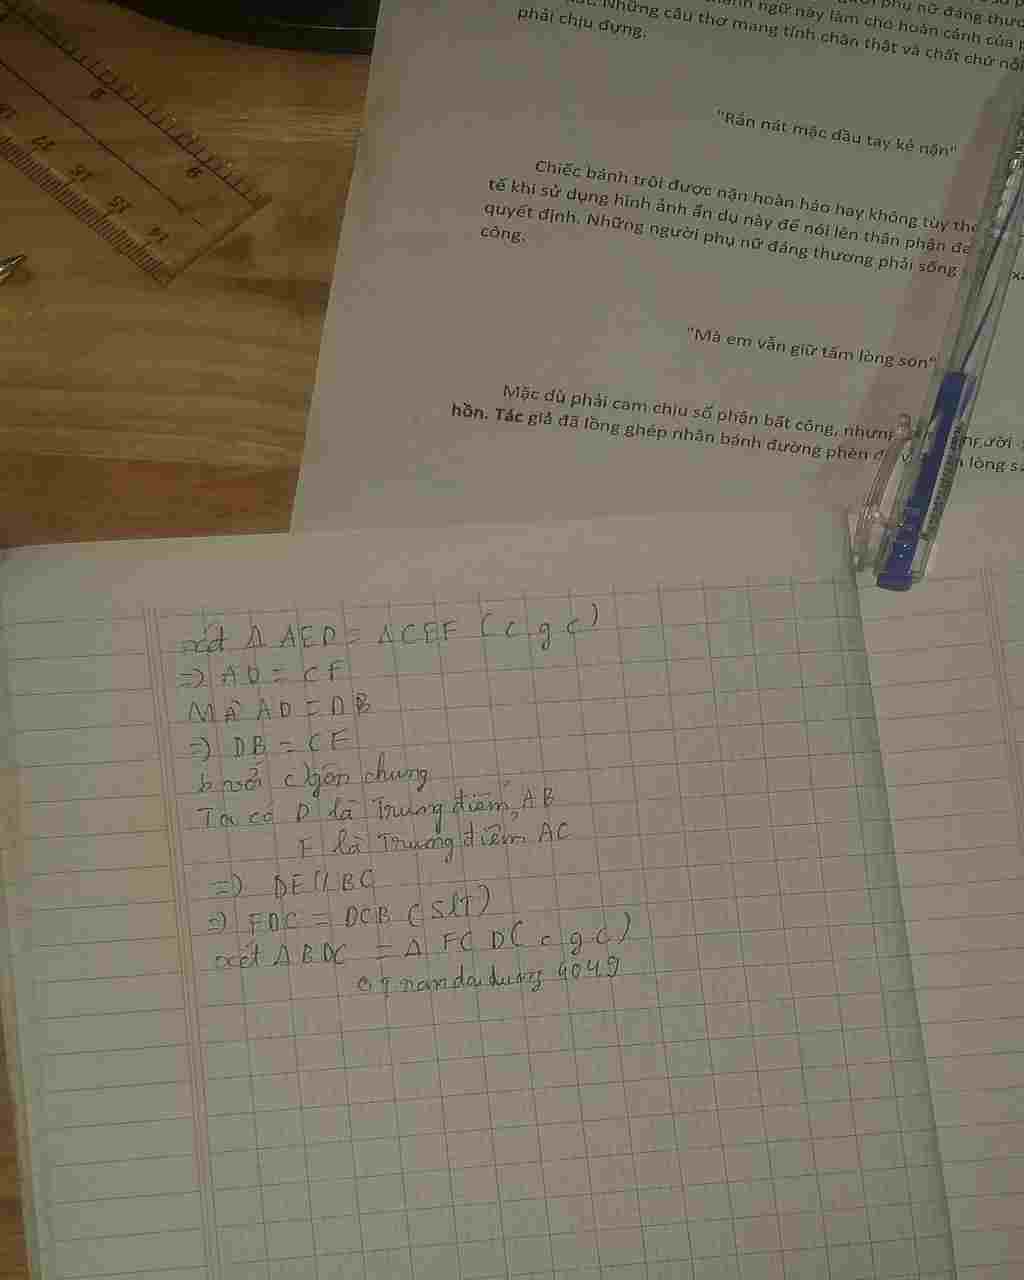 phụ nữ đáng
ngữ này làm cho hoàn cảnh của
Những câu thơ mang tính chân thật và chất chứ nỗi
phải chịu đựng.
"Rắn nát mặc dầu tay kẻ nặn"
Chiếc bánh trôi được nặn hoàn hảo hay không tùy
tế khi sử dụng hình ảnh ẩn dụ này để nói lên thân phận
quyết định. Những người phụ nữ đáng thương phải sống
công.
"Mà em vẫn giữ tấm lòng son"
Mặc dù phải cam chịu số phận bất công, người
hồn. Tác giả đã lồng ghép nhân bánh đường phèn lòng
xét Δ AED = ΔCEF (c g c)
=> AD = CF
Mà AD = DB
=> DB = CF
Ta có D là Trung điểm AB
F là Trung điểm AC
=> DE // BC
=> FDC = DCB (SLT)
xét Δ BDC = Δ FCD (c g c)